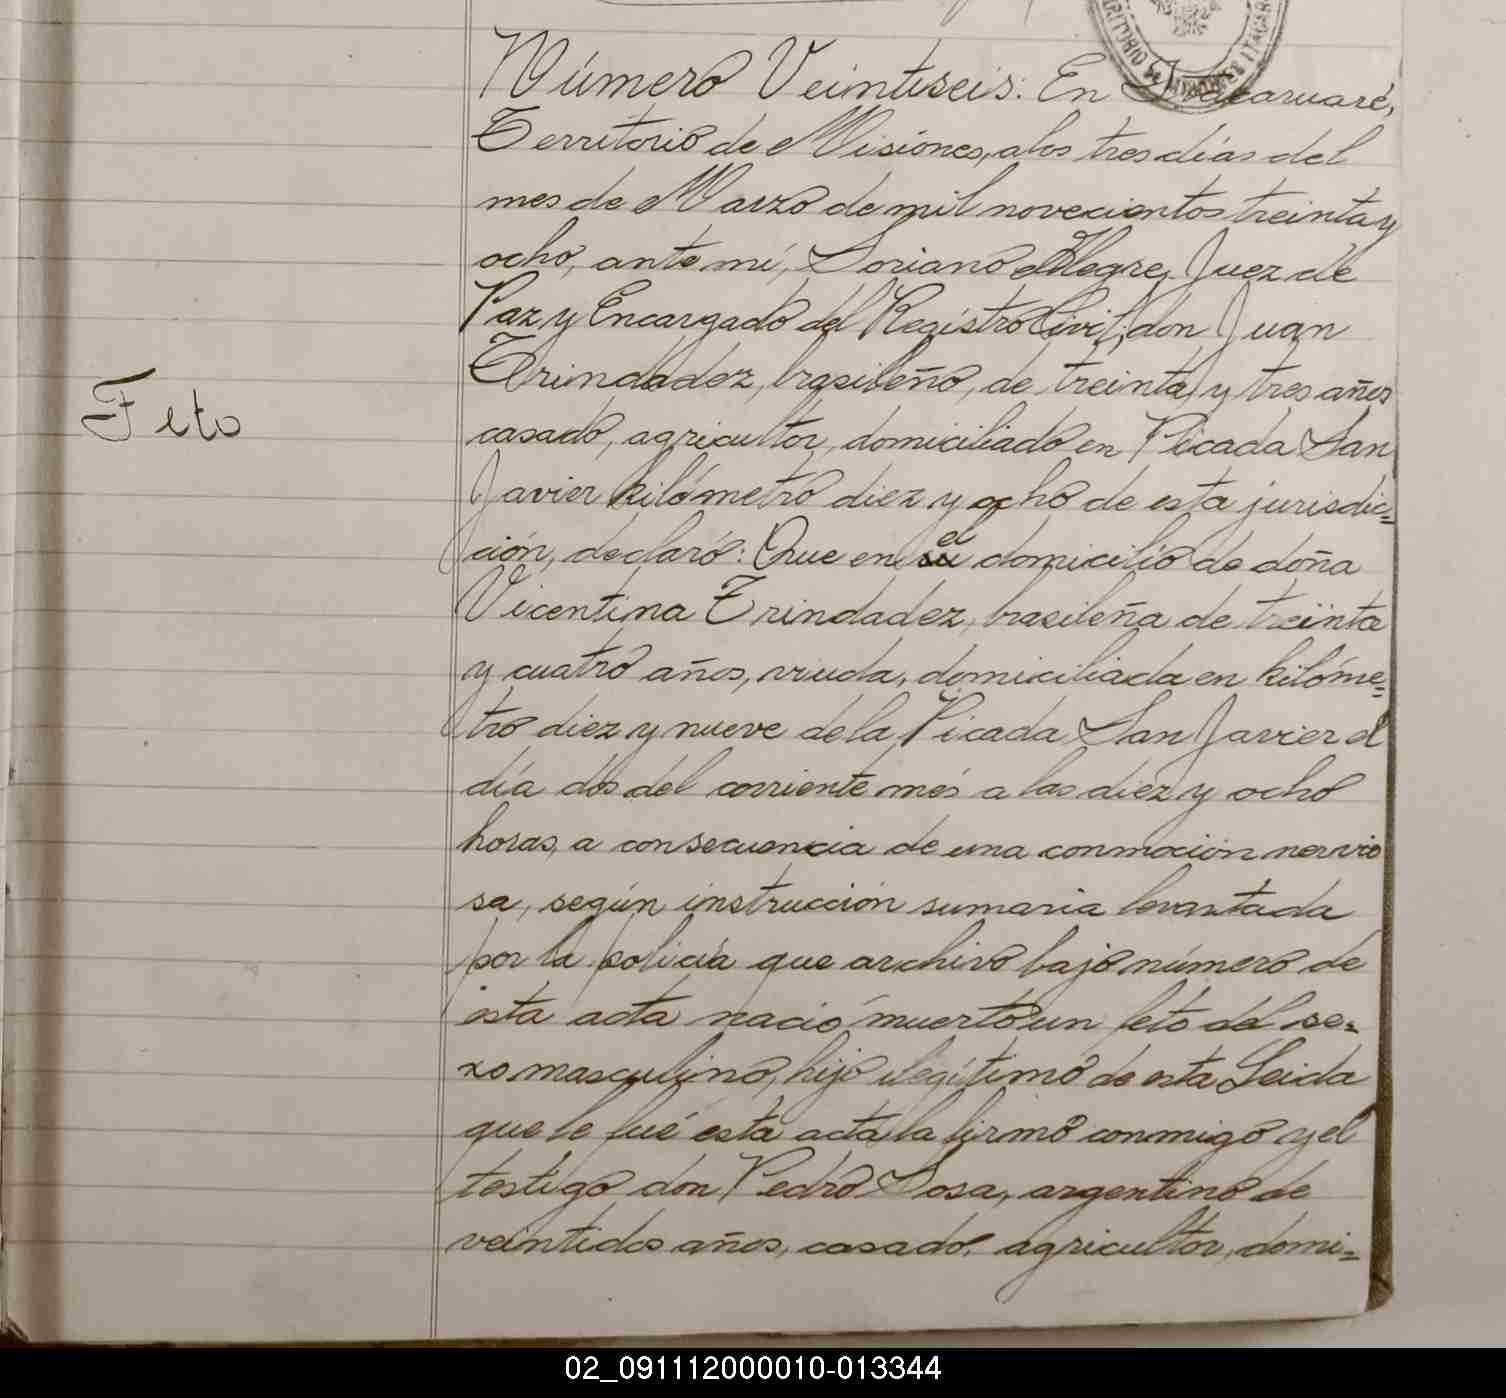 Número Veintiseis: En Itacaruaré,
Territorio de Misiones, a los tres días del
mes de Marzo de mil novecientos treinta y
ocho, ante mí, Soriano Alegre, Juez de
Paz y Encargado del Registro Civil, don Juan
Trindadez, brasileño, de treinta y tres años
Feto
casado, agricultor, domiciliado en Picada San
Javier kilómetro diez y ocho de esta jurisdic=
ción, declaró: Que en su el domicilio de doña
Vicentina Trindadez, brasileña de treinta
y cuatro años, viuda, domiciliada en kilóme=
tro diez y nueve de la Picada San Javier el
día dos del corriente més a las diez y ocho
horas, a consecuencia de una conmoción nervio
sa, según instrucción sumaria levantada
por la policía que archivo bajo número de
esta acta nació muerto un feto del se=
xo masculino, hijo ilegítimo de esta Leida
que le fué esta acta la firmó conmigo y el
testigo don Pedro Sosa, argentino de
veintidos años, casado, agricultor, domi=
02_091112000010-013344